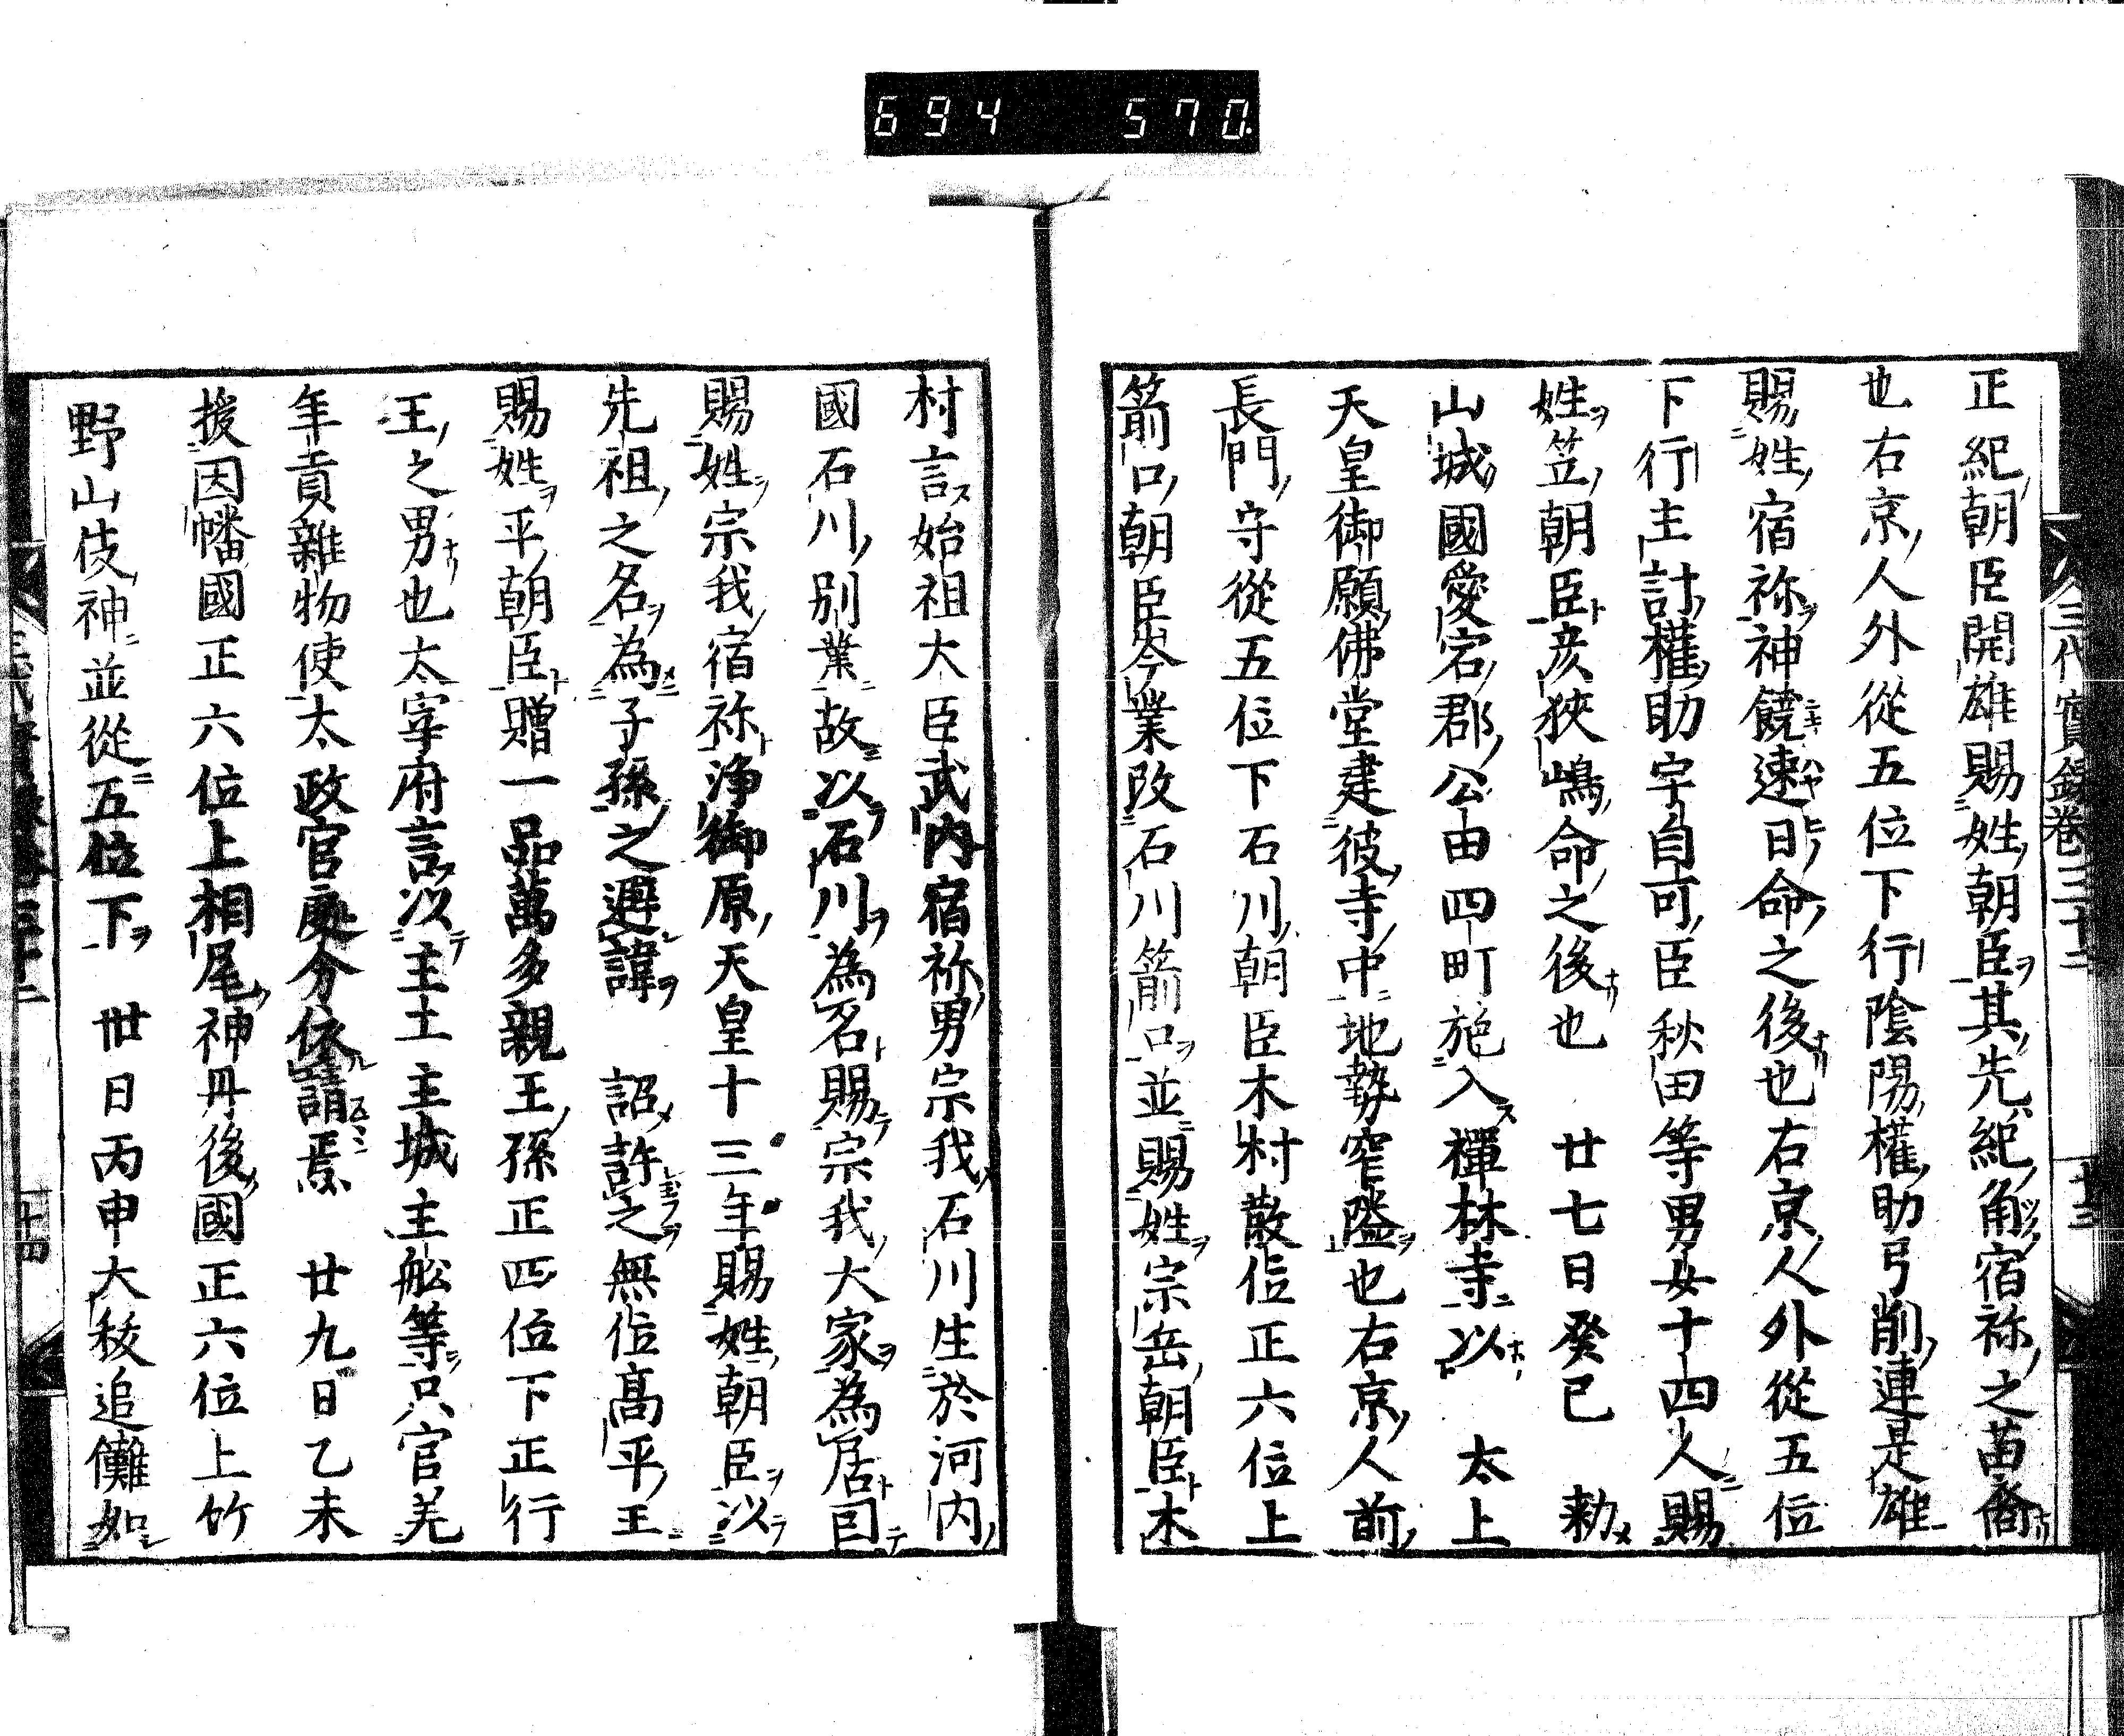 694 570
三代實錄卷三十二 廿三
正紀朝臣開雄賜姓朝臣其先紀角宿祢之苗裔
也右京人外從五位下行陰陽權助弓削連是雄
賜姓宿祢神饒速日命之後也右京人外從五位
下行主計權助宇自可臣秋田等男女十四人賜
姓笠朝臣彥狹嶋命之後也 廿七日癸巳 勑
山城國愛宕郡公由四町施入禪林寺以 太上
天皇御願佛堂建彼寺中地勢窄隘也右京人前
長門守從五位下石川朝臣木村散位正六位上
箭口朝臣岑業改石川箭口並賜姓宗岳朝臣木
村言始祖大臣武內宿祢男宗我石川生於河內
國石川別業故以石川為名賜宗我大家為居囙
賜姓宗我宿祢浄御原天皇十三年賜姓朝臣以
先祖之名為子孫之避諱 詔許之無位髙平王
賜姓平朝臣贈一品萬多親王孫正四位下正行
王之男也太宰府言以主土主城主舩等只官羌
年貢雜物使太政官處分依請焉 廿九日乙未
授因幡國正六位上相尾神丹後國正六位上竹
野山伎神並從五位下 丗日丙申大秡追儺如